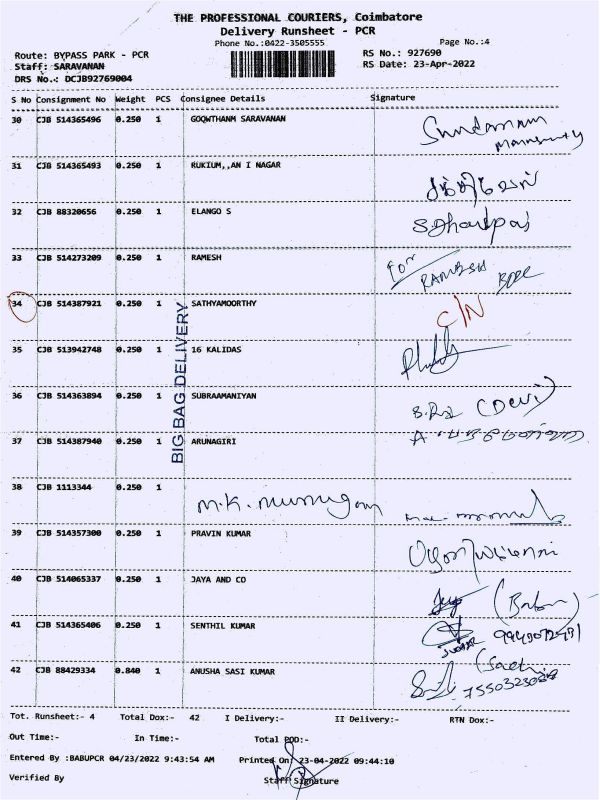 THE PROFESSIONAL COURIERS, Coimbatore
Delivery Runsheet - PCR
Phone No.:0422-3505555 Page No.:4
Route: BYPASS PARK - PCR RS No.: 927690
Staff: SARAVANAN RS Date: 23-Apr-2022
DRS No.: DCJB92769004
S No Consignment No Weight PCS Consignee Details Signature
30 CJB 514365496 0.250 1 GOQWTHANM SARAVANAN
31 CJB 514365493 0.250 1 RUKIUM,,AN I NAGAR சக்திவேல்
32 CJB 88320656 0.250 1 ELANGO S
33 CJB 514273209 0.250 1 RAMESH for RAMESH
34 CJB 514387921 0.250 1 SATHYAMOORTHY C/N
BIG BAG DELIVERY
35 CJB 513942748 0.250 1 16 KALIDAS
36 CJB 514363894 0.250 1 SUBRAAMANIYAN (Devi)
37 CJB 514387940 0.250 1 ARUNAGIRI
38 CJB 1113344 0.250 1 M.K. Murugan
39 CJB 514357300 0.250 1 PRAVIN KUMAR
40 CJB 514065337 0.250 1 JAYA AND CO
41 CJB 514365406 0.250 1 SENTHIL KUMAR
42 CJB 88429334 0.840 1 ANUSHA SASI KUMAR
Tot. Runsheet:- 4 Total Dox:- 42 I Delivery:- II Delivery:- RTN Dox:-
Out Time:- In Time:- Total POD:-
Entered By :BABUPCR 04/23/2022 9:43:54 AM Printed On: 23-04-2022 09:44:10
Verified By Staff Signature